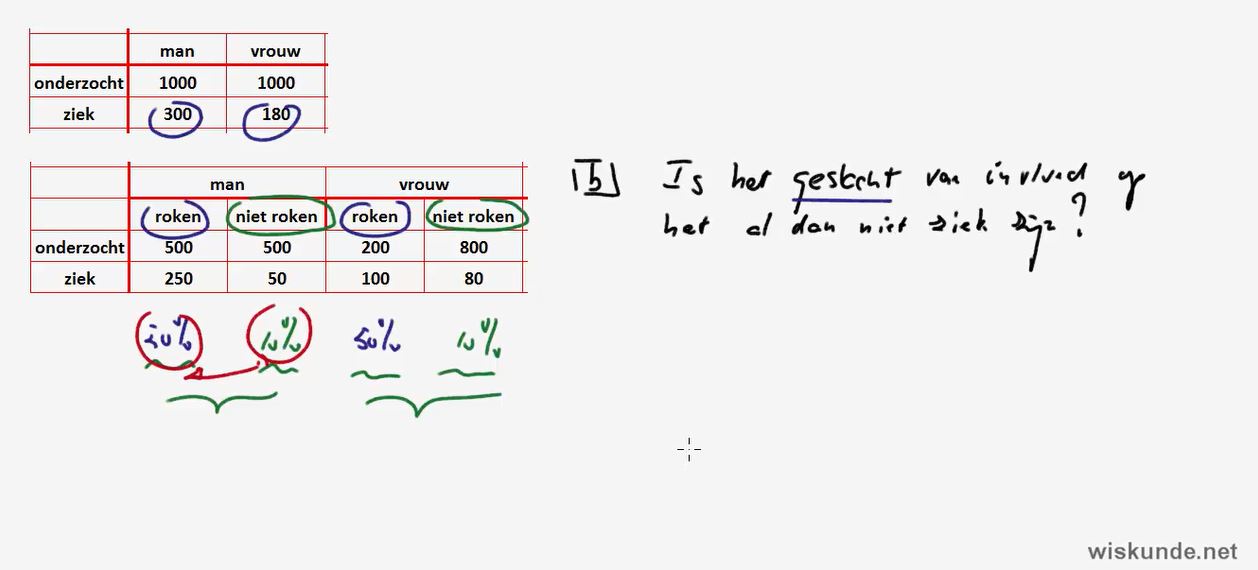 man vrouw
onderzocht 1000 1000
ziek 300 180
man vrouw
roken niet roken roken niet roken
onderzocht 500 500 200 800
ziek 250 50 100 80
50% 10% 50% 10%
b Is het geslacht van invloed op
het al dan niet ziek zijn?
wiskunde.net